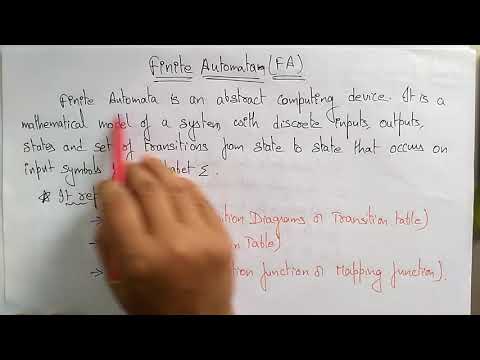 Finite Automata (FA)
Finite Automata is an abstract computing device. It is a
mathematical model of a system with discrete inputs, outputs,
states and set of transitions from state to state that occurs on
input symbols alphabet Σ.
* It rep
→ tion Diagrams or Transition table)
→ n Table)
→ tion function or Mapping function).